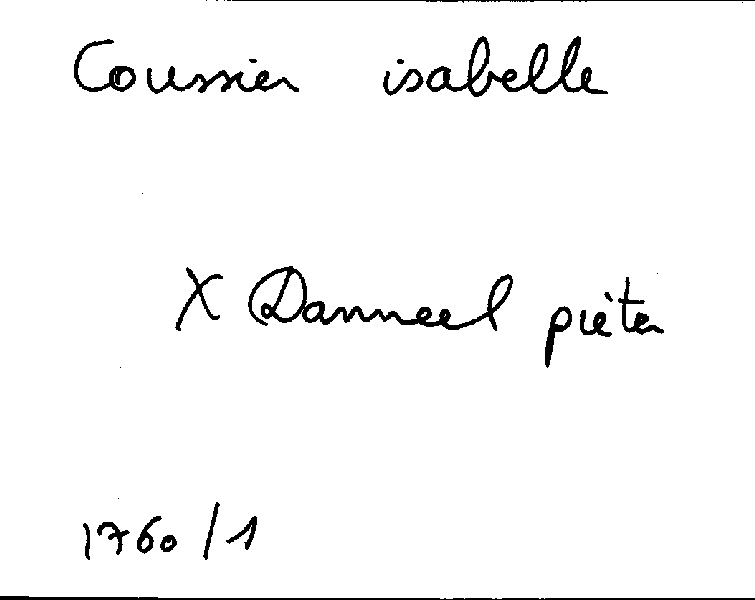 Coussier isabelle
X Danneel pieter
1760/1